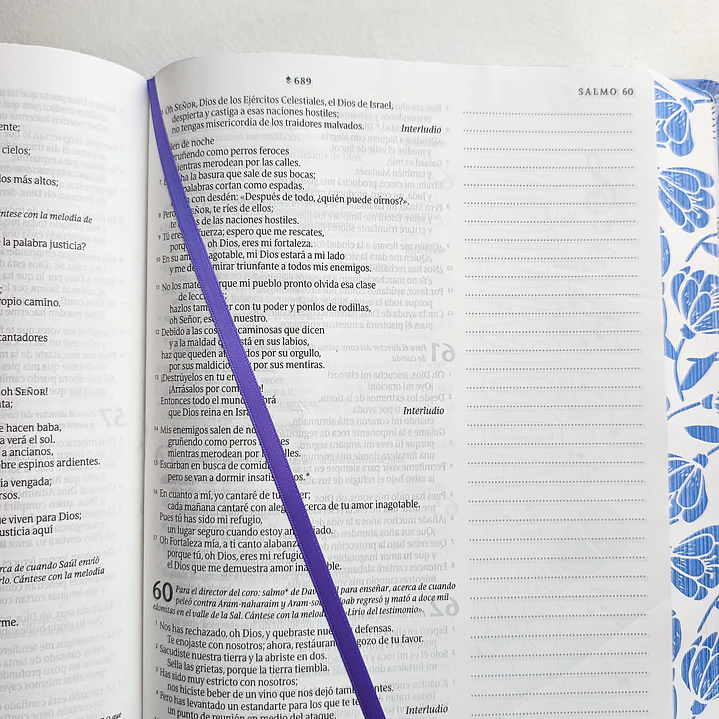 ente;
cielos;
los más altos;
ntese con la melodía de
la palabra justicia?
ropio camino.
cantadores
oh SEÑOR!
nta;
e hacen baba,
a verá el sol.
a ancianos,
obre espinos ardientes.
ia vengada;
rsos.
ue viven para Dios;
usticia aquí
rca de cuando Saúl envió
rlo. Cántese con la melodía
rme.
689
SALMO 60
Oh SEÑOR, Dios de los Ejércitos Celestiales, el Dios de Israel,
despierta y castiga a esas naciones hostiles;
no tengas misericordia de los traidores malvados. Interludio
en de noche
ruñendo como perros feroces
ientras merodean por las calles.
ha la basura que sale de sus bocas;
palabras cortan como espadas.
con desdén: «Después de todo, ¿quién puede oírnos?».
8 Pero SEÑOR, te ríes de ellos;
te de las naciones hostiles.
9 Tú eres fuerza; espero que me rescates,
porq oh Dios, eres mi fortaleza.
10 En su am agotable, mi Dios estará a mi lado
y me de mirar triunfante a todos mis enemigos.
11 No los mates que mi pueblo pronto olvida esa clase
de lecc
hazlos tam r con tu poder y ponlos de rodillas,
oh Señor, es nuestro.
12 Debido a las cos caminosas que dicen
y a la maldad q stá en sus labios,
haz que queden a dos por su orgullo,
por sus maldicio por sus mentiras.
13 ¡Destrúyelos en tu en
¡Arrásalos por com !
Entonces todo el mund brá
que Dios reina en Isra Interludio
14 Mis enemigos salen de no
gruñendo como perros es
mientras merodean por l lles.
15 Escarban en busca de comid
pero se van a dormir insatis os.*
16 En cuanto a mí, yo cantaré de tu er;
cada mañana cantaré con aleg cerca de tu amor inagotable.
Pues tú has sido mi refugio,
un lugar seguro cuando estoy an ado.
17 Oh Fortaleza mía, a ti canto alabanz
porque tú, oh Dios, eres mi refugio
el Dios que me demuestra amor ina ble.
60 Para el director del coro: salmo* de Dav para enseñar, acerca de cuando
peleó contra Aram-naharaim y Aram-so Joab regresó y mató a doce mil
edomitas en el valle de la Sal. Cántese con la melod «Lirio del testimonio».
1 Nos has rechazado, oh Dios, y quebraste nue defensas.
Te enojaste con nosotros; ahora, restáura gozo de tu favor.
2 Sacudiste nuestra tierra y la abriste en dos.
Sella las grietas, porque la tierra tiembla.
3 Has sido muy estricto con nosotros;
nos hiciste beber de un vino que nos dejó tamb ntes.
4 Pero has levantado un estandarte para los que te te
un punto de reunión en medio del ataque. Interludio